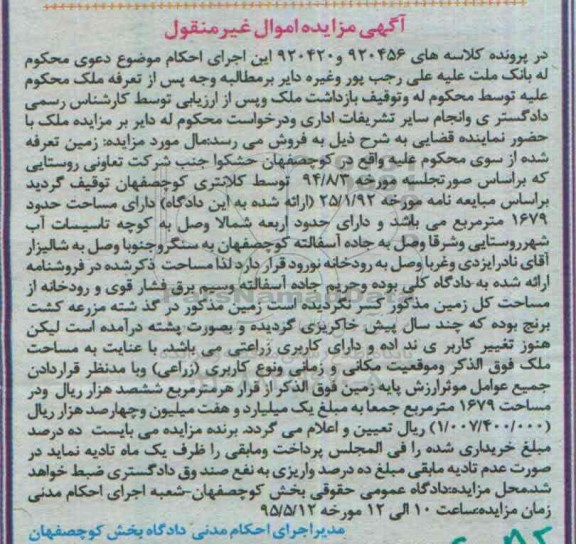 آگهی مزایده اموال غیرمنقول
در پرونده کلاسه های ۹۲۰۴۵۶ و۹۲۰۴۲۰ این اجرای احکام موضوع دعوی محکوم
له بانک ملت علیه علی رجب پور وغیره دایر برمطالبه وجه پس از تعرفه ملک محکوم
علیه توسط محکوم له وتوقیف بازداشت ملک وپس از ارزیابی توسط کارشناس رسمی
دادگستر ی وانجام سایر تشریفات اداری ودرخواست محکوم له دایر بر مزایده ملک با
حضور نماینده قضایی به شرح ذیل به فروش می رسد:مال مورد مزایده: زمین تعرفه
شده از سوی محکوم علیه واقع در کوچصفهان حشکوا جنب شرکت تعاونی روستایی
که براساس صورتجلسه مورخه ۹۴/۸/۳ توسط کلانتری کوچصفهان توقیف گردید
براساس مبایعه نامه مورخه ۲۵/۱/۹۲ (ارائه شده به این دادگاه) دارای مساحت حدود
۱۶۷۹ مترمربع می باشد و دارای حدود اربعه شمالا وصل به کوچه تاسیسات آب
شهرروستایی وشرقا وصل به جاده آسفالته کوچصفهان به سنگروجنوبا وصل به شالیزار
آقای نادرایزدی وغربا وصل به رودخانه نورود قرار دارد لذا مساحت ذکرشده در فروشنامه
ارائه شده به دادگاه کلی بوده وحریم جاده آسفالته وسیم برق فشار قوی و رودخانه از
مساحت کل زمین مذکور کسر نگردیده است زمین مذکور در گذ شته مزرعه کشت
برنج بوده که چند سال پیش خاکریزی گردیده و بصورت پشته درآمده است لیکن
هنوز تغییر کاربر ی ند اده و دارای کاربری زراعتی می باشد. با عنایت به مساحت
ملک فوق الذکر وموقعیت مکانی و زمانی ونوع کاربری (زراعی) وبا مدنظر قراردادن
جمیع عوامل موثرارزش پایه زمین فوق الذکر از قرار هرمترمربع ششصد هزار ریال ودر
مساحت ۱۶۷۹ مترمربع جمعا به مبلغ یک میلیارد و هفت میلیون وچهارصد هزار ریال
(۱/۰۰۷/۴۰۰/۰۰۰) ریال تعیین و اعلام می گردد. برنده مزایده می بایست ده درصد
مبلغ خریداری شده را فی المجلس پرداخت ومابقی را ظرف یک ماه تادیه نماید در
صورت عدم تادیه مابقی مبلغ ده درصد واریزی به نفع صند وق دادگستری ضبط خواهد
شد.محل مزایده:دادگاه عمومی حقوقی بخش کوچصفهان-شعبه اجرای احکام مدنی
زمان مزایده:ساعت ۱۰ الی ۱۲ مورخه ۹۵/۵/۱۲
مدیراجرای احکام مدنی دادگاه بخش کوچصفهان